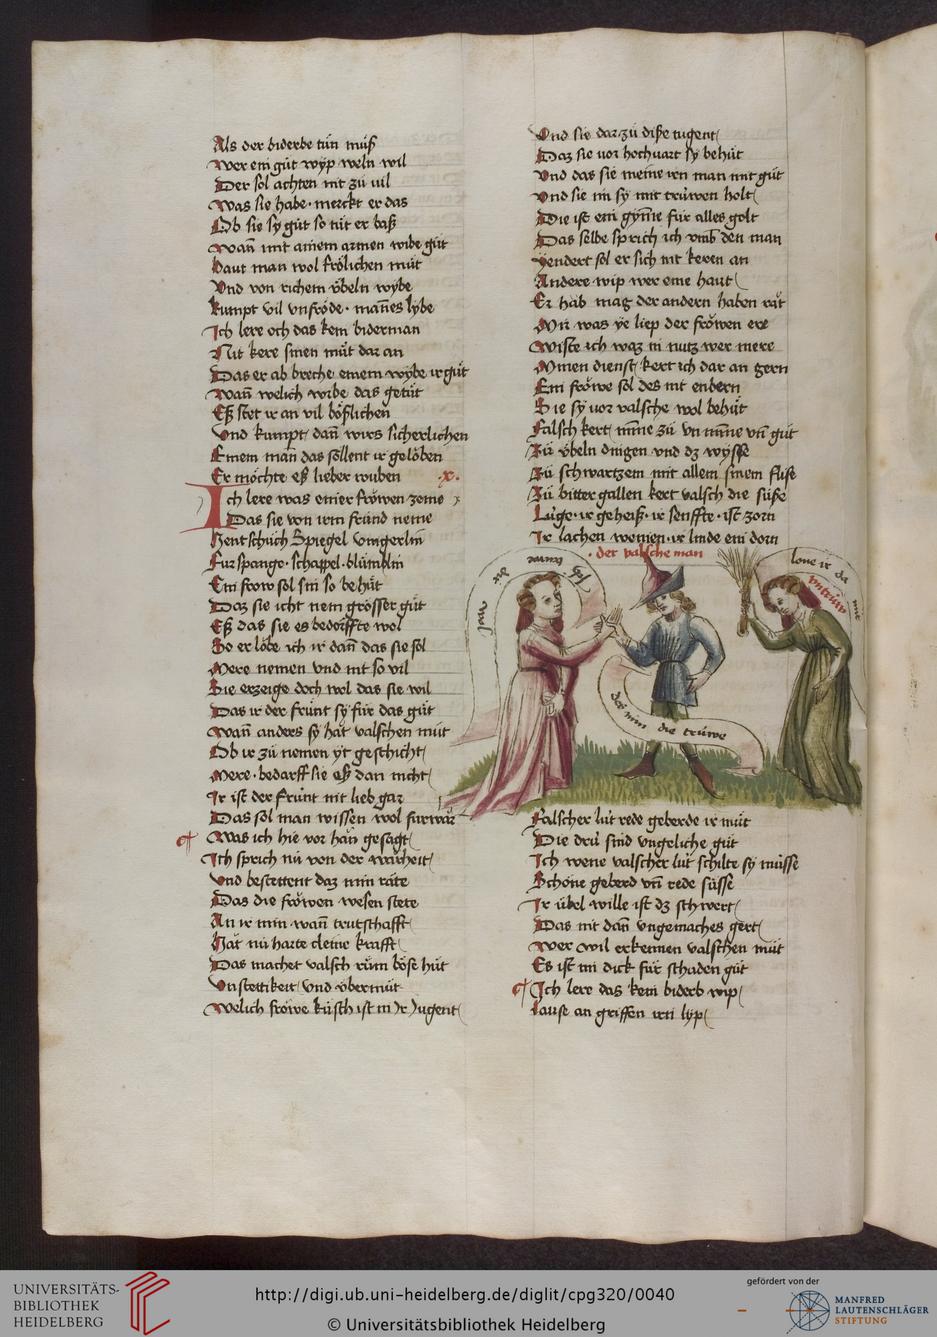 Als der biderbe tuͦn muͦß
Wer ein guͦt wyp weln wil
Der sol achten nit zuͦ vil
Was sie habe · merckt er das
Ob sie sy guͦt so tuͦt er baß
Wañ mit ainem armen wibe guͦt
Haut man wol froͤlichen muͦt
Vnd von richem v̈beln wybe
Kumpt vil vnfroͤde · mañes lybe
Ich lere och das kein biderman
Nit kere sinen muͦt dar an
Das er ab breche einem wybe ir guͦt
Wañ welich wibe das getuͦt
Eß stet ir an vil boͤßlichen
Vnd kumpt dañ wirs sicherlichen
Einem man das soͤllent ir geloͤben
Er moͤchte eß lieber rouben
·x·
Ich lere was einer froͤwen zeme
Das sie von irm fründ neme
Hentschuͦch Spiegel vingerlin
Furspange · schappel · bluͤmblin
Ein frow sol sin so behuͦt
Daz sie icht nem groͤsser guͦt
Eß das sie es bedoͤrffte wol
So erloͤbe ich ir dañ das sie sol
Mere nemen vnd nit so vil
Sie erzeige doch wol das sie wil
Das ir der frünt sy für das guͦt
Wañ anders sy haͤt valschen muͦt
Ob ir zuͦ nemen yͤt geschicht
Mere · bedarff sie eß dan nicht
Ir ist der frünt nit lieb gar
Das sol man wissen wol furwar
Was ich hie vor han gesagt
Ich sprich nuͦ von der warheit
Vnd bestettent daz min raͤte
Das die froͤwen wesen stete
An ir min wañ trutschafft
Haͤt nuͦ harte cleine krafft
Das machet valsch ruͦm boͤse huͦt
Vnstettikeit vnd v̈bermuͦt
Welich froͤwe küsch ist in Ir Jugent
Vnd sie dar zuͦ diße tugent
Daz sie vor hochuart sy behuͦt
Vnd das sie meine iren man mit guͦt
Vnd sie im sy mit trüwen holt
Die ist ein gym̄e für alles golt
Das selbe sprich ich vmb den man
Yendert sol er sich nit keren an
Andere wip wer eine haut
Er hab mag der andern haben raͤt
Nuͦ was ye liep der froͤwen ere
Wiste ich waz in nutz wer mere
Minen dienst kert ich dar an gern
Ein froͤwe sol des nit enbern
Sie sy vor valsche wol behuͦt
Falsch kert miñe zuͦ vn miñe vn̄ guͦt
Zuͦ v̈beln dingen vnd dz wysse
Zuͦ schwartzem mit allem sinem fliße
Zuͦ bitter gallen kert valsch die suͤße
Luͤge · ir geheiß · ir senffte · ist zorn
Ir lachen weinen · ir linde ein dorn
· der valsche man
das min die trüwe
lone ir da mit
vntrüw
Falscher lüt rede geberde ir muͦt
Die drü sind vngeliche guͦt
Ich wene valscher lüt schilte sy muͤsse
Schoͤne geberd vn̄ rede suͤsse
Ir übel wille ist dz schwert
Das nit dañ vngemaches gert
Wer wil erkennen valschen muͦt
Es ist im dick für schaden guͦt
Ich lere das kein biderb wip
Lause an griffen irn lyp
UNIVERSITÄTS-
BIBLIOTHEK
HEIDELBERG
http://digi.ub.uni-heidelberg.de/diglit/cpg320/0040
© Universitätsbibliothek Heidelberg
gefördert von der
MANFRED
LAUTENSCHLÄGER
STIFTUNG